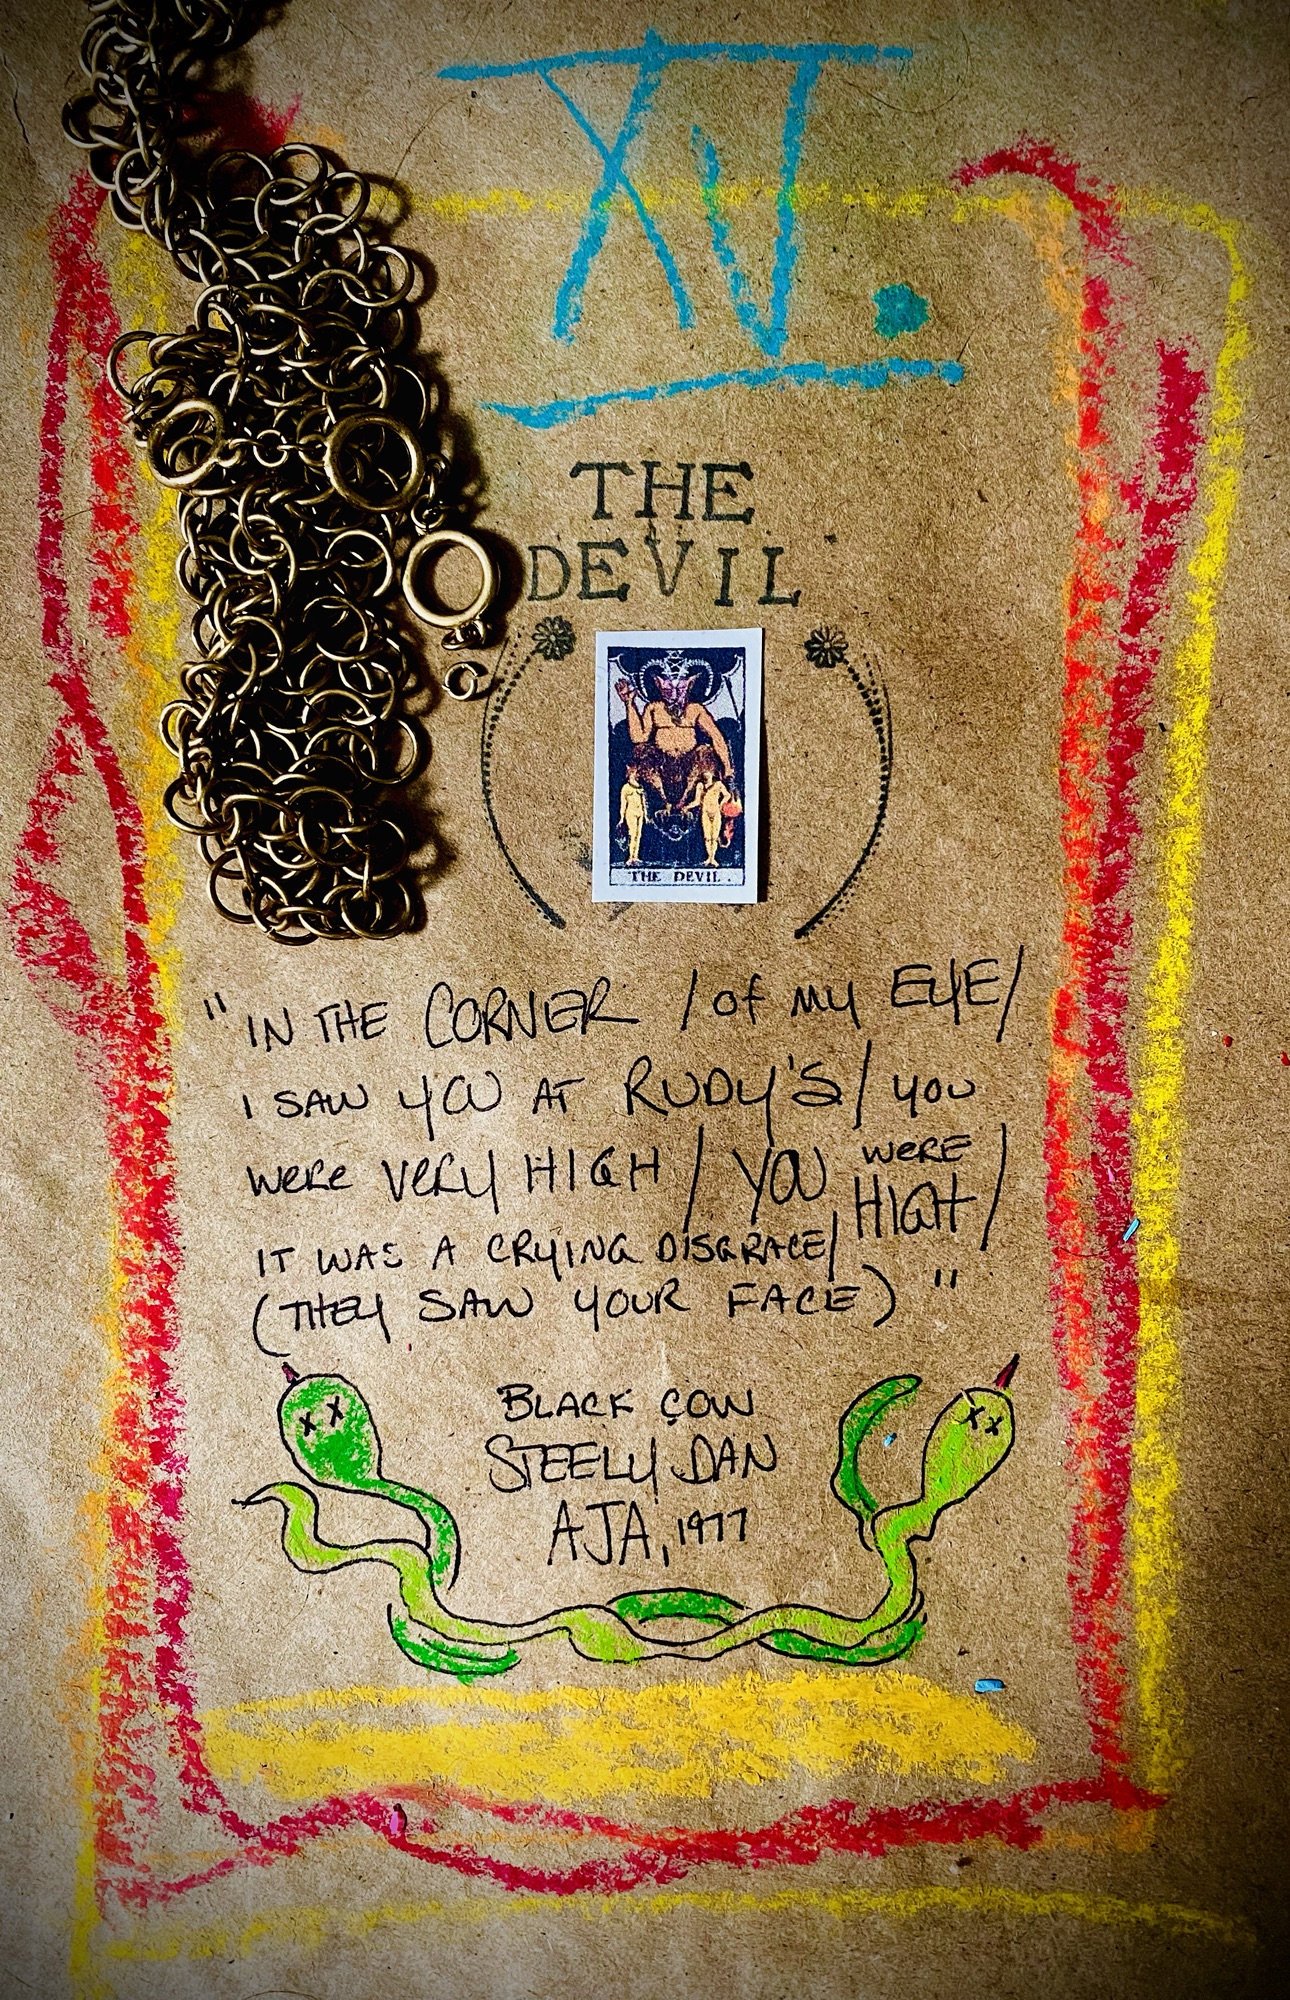 XV.
THE
DEVIL
THE DEVIL.
"IN THE CORNER / of my EYE/
I SAW YOU AT RUDY'S/ you
were very HIGH / YOU were
HIGH/
IT WAS A CRYING DISGRACE/
(THEY SAW YOUR FACE) "
BLACK COW
STEELY DAN
AJA, 1977